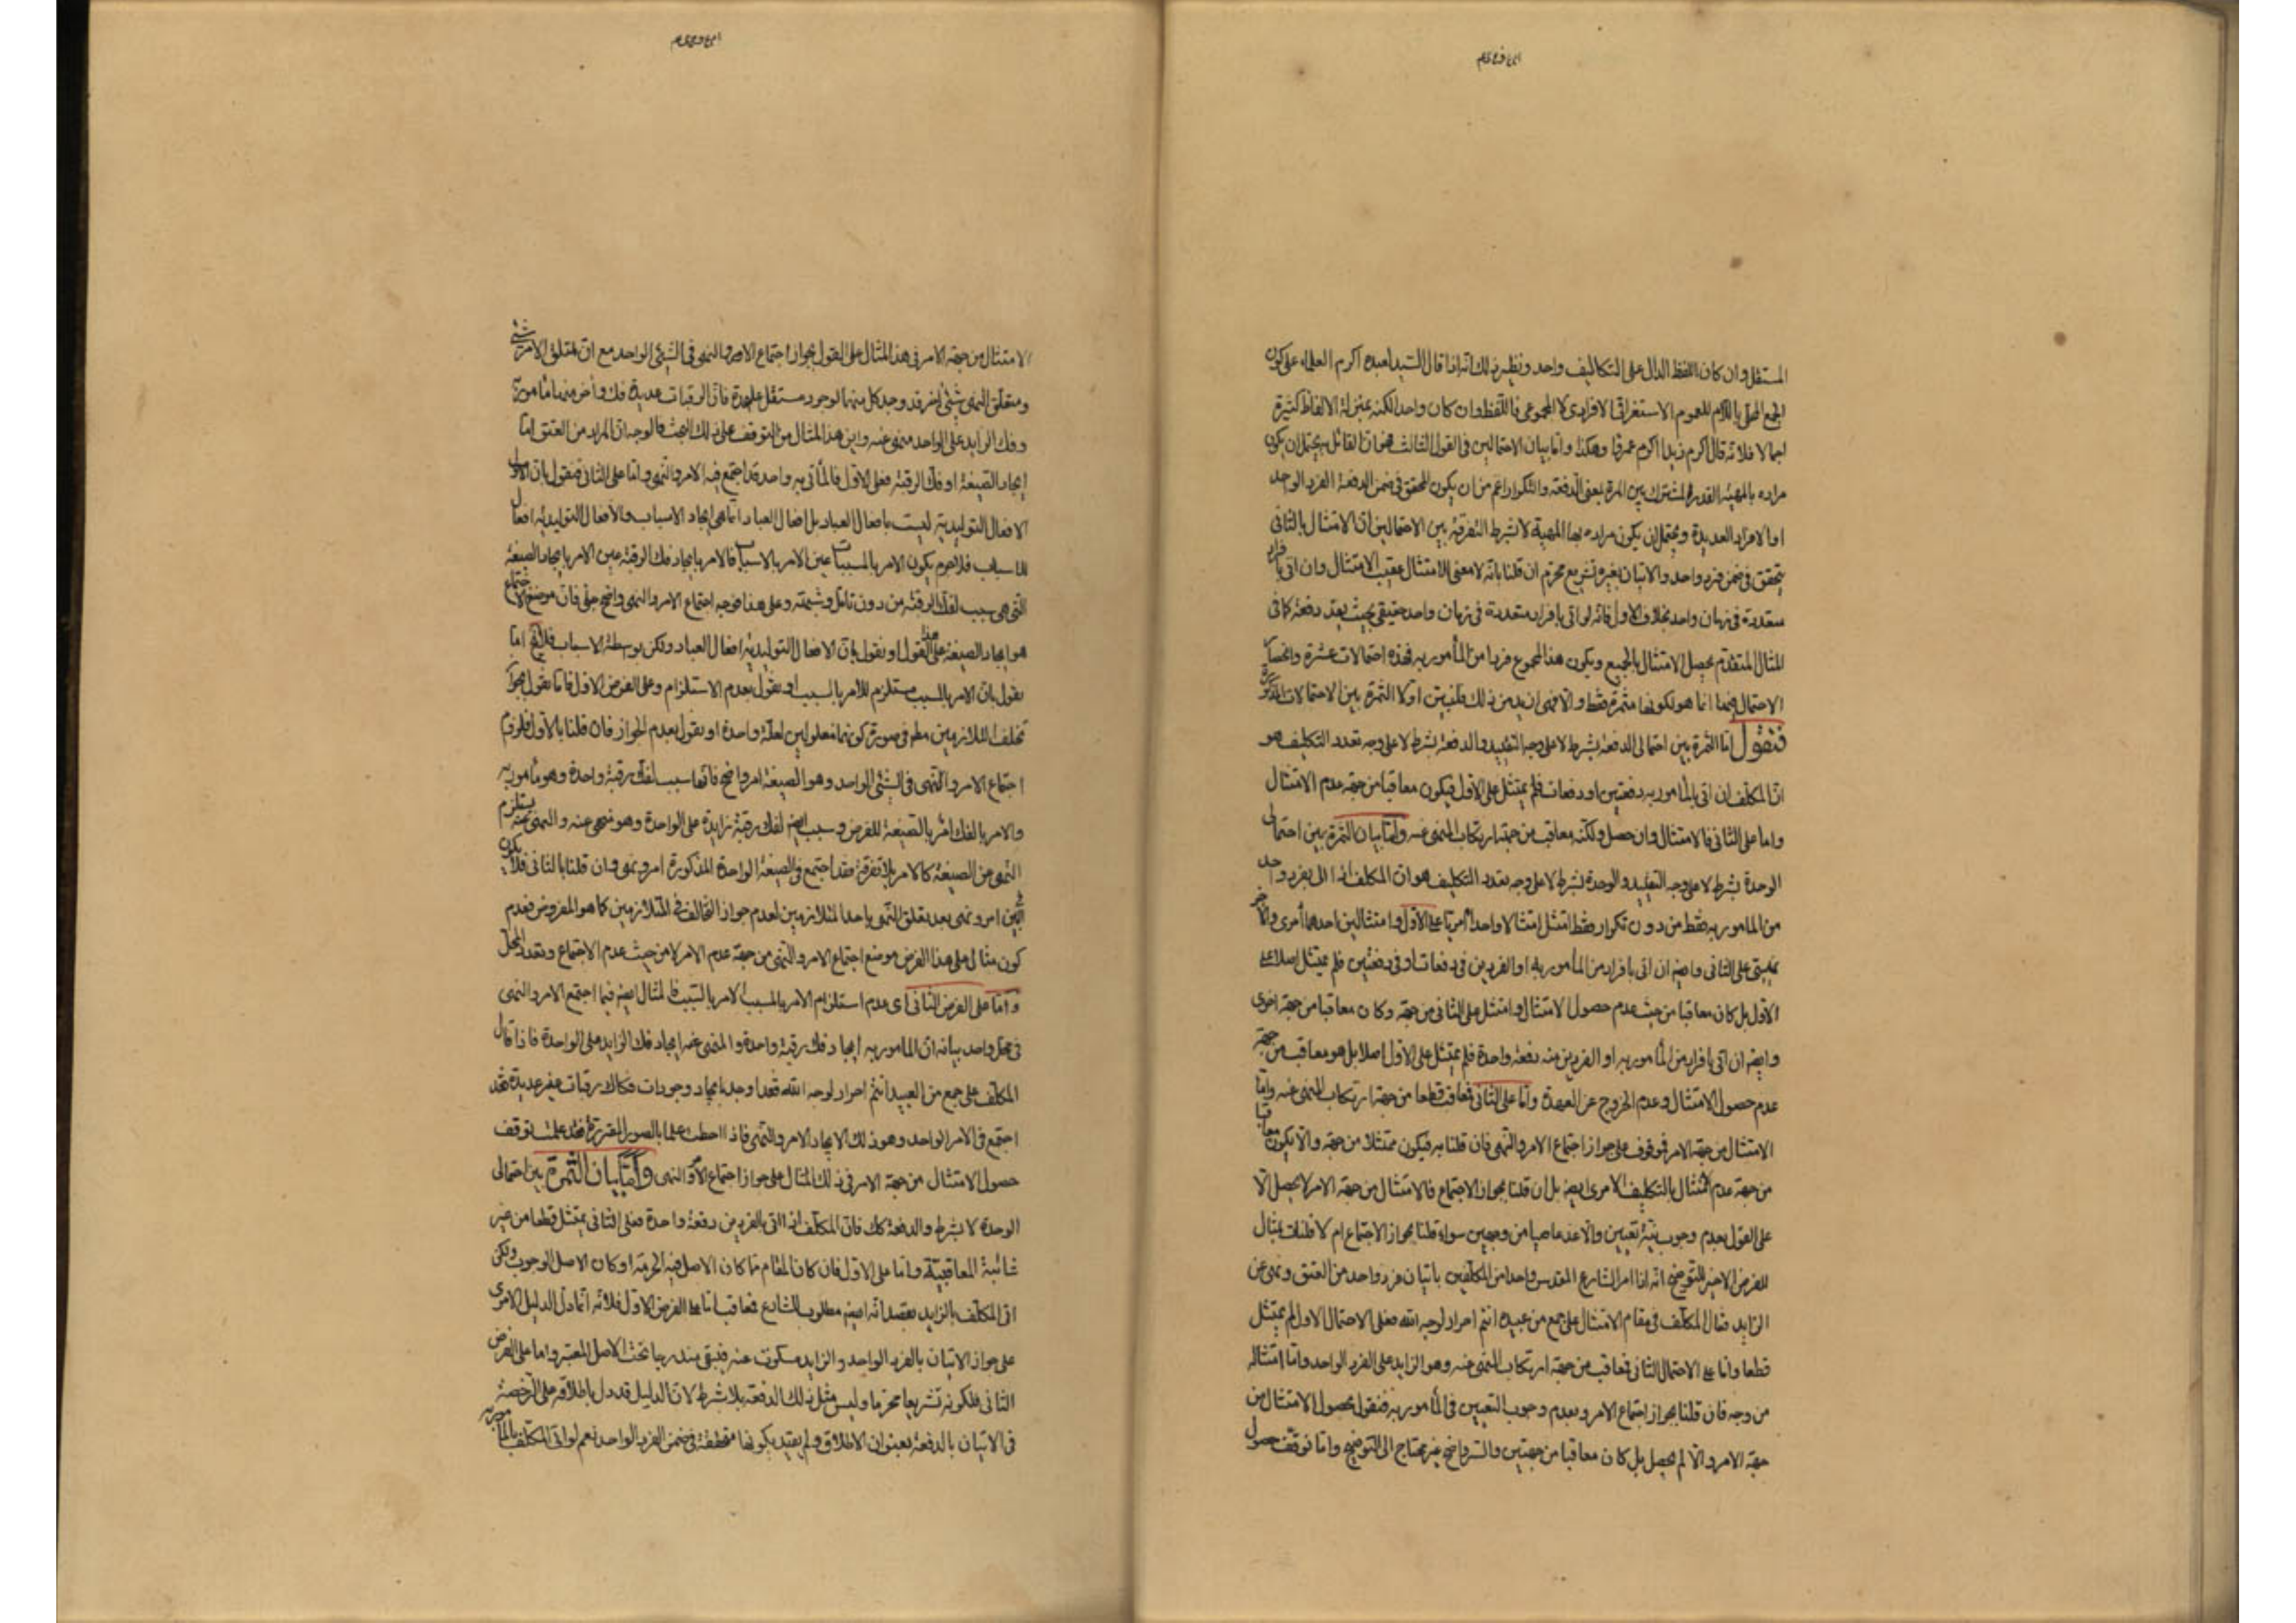 المستقل وان كان اللفظ الدال على التكاليف واحد ونظير ذلك انه اذا قال السيد لعبده اكرم العلماء على كون
الجمع المحلى باللام للعموم الاستغراقي الافرادي لا المجموعي فاللفظ وان كان واحدا لكنه بمنزلة الالفاظ كثيرة
اجمالا فلانه قال اكرم زيدا اكرم عمرا وهكذا واما بيان الاحتمالين في القول الثالث فهو ان القائل به يحتمل ان يكون
مراده بالمهية القدر المشترك بين المرة بمعنى الدفعة والتكرار اعم من ان يكون المحقق في ضمن الدفعة الفرد الواحد
او الافراد العديدة ويحتمل ان يكون مراده بها المهية لا بشرط التفرقة بين الاحتمالين ان الامتثال بالثاني
يتحقق في ضمن فرد واحد والاتيان بغيره تشريع محرم ان قلنا بانه لا معنى للامتثال عقيب الامتثال وان اتى بافراد
متعددة في زمان واحد بخلاف الاول فانه لو اتى بافراد متعددة في زمان واحد حقيقي بحيث يعد دفعة كما في
المثال المتقدم يحصل الامتثال بالجميع ويكون هذا المجموع فردا من المأمور به فهذه احتمالات عشرة وانحصار
الاحتمال فيها انما هو لكونها مثمرة فقط والا فهى ازيد من ذلك فلنبين اولا الثمرة بين الاحتمالات المذكورة
فنقول اما الثمرة بين احتمالي الدفعة بشرط لا على وجه التقييد والدفعة بشرط لا على وجه تعدد التكليف هو
ان المكلف ان اتى بالمأمور به دفعتين او دفعات فلم يمتثل على الاول فيكون معاقبا من جهة عدم الامتثال
واما على الثاني فالامتثال وان حصل ولكنه معاقب من جهة ارتكاب المنهى عنه واما بيان الثمرة بين احتمالي
الوحدة بشرط لا على وجه التقييد والوحدة بشرط لا على وجه تعدد التكليف هو ان المكلف اذا اتى بفرد واحد
من المامور به فقط من دون تكرار فقط امتثل امتثالا واحدا امريا على الاول وامتثالين احدهما أمري والآخر
نهيي على الثاني وايضا ان اتى بافراد من المأمور به او الفردين في دفعات او في دفعتين فلم يمتثل اصلا على
الاول بل كان معاقبا من حيث عدم حصول الامتثال وامتثل على الثاني من جهة وكان معاقبا من جهة اخرى
وايضا ان اتى بافراد من المأمور به او الفردين منه دفعة واحدة فلم يمتثل على الاول اصلا بل هو معاقب من جهة
عدم حصول الامتثال وعدم الخروج عن العهدة واما على الثاني فمعاقب قطعا من جهة ارتكاب المنهى عنه واما
الامتثال من جهة الامر فموقوف على جواز اجتماع الامر والنهى فان قلنا به فيكون ممتثلا من جهة والا يكون معاقبا
من جهة عدم امتثال بالتكليف الامري ايضا بل ان قلنا بجواز الاجتماع فالامتثال من جهة الامر لا يحصل الا
على القول بعدم وجوب نية تعيين والا عد عاصيا من وجهين سواء قلنا بجواز الاجتماع ام لا فلنات بمثال
للفرض الاخير للتوضيح انه اذا امر الشارع المقدس واحدا من المكلفين باتيان فرد واحد من العتق ونهى عن
الزايد فقال المكلف في مقام الامتثال على جمع من عبيده انتم احرار لوجه الله فعلى الاحتمال الاول لم يمتثل
قطعا واما على الاحتمال الثاني فمعاقب من جهة ارتكاب المنهى عنه وهو الزايد على الفرد الواحد واما امتثاله
من وجه فان قلنا بجواز اجتماع الامر وبعدم وجوب التعيين في المأمور به فنقول بحصول الامتثال من
جهة الامر والا لم يحصل بل كان معاقبا من جهتين والسر واضح غير محتاج الى التوضيح واما توقف حصول
الامتثال من جهة الامر في هذا المثال على القول بجواز اجتماع الامر والنهى في الشيئ الواحد مع ان متعلق الامر شئ
ومتعلق النهى شيئ اخر قد وجد كل منهما بوجود مستقل على حدة فان الرقبات عديدة فك واحد منها مامور به
وفك الزايد على الواحد منهى عنه واين هذا المثال من التوقف على ذلك البحث فالوجه ان المراد من العتق اما
ايجاد الصيغة او فك الرقبة فعلى الاول فالمأتى به واحد قد اجتمع فيه الامر والنهى واما على الثاني فنقول بان الاول
الافعال التوليدية ليست بافعال العباد بل افعال العباد انما هى ايجاد الاسباب والافعال التوليدية افعال
للاسباب فلا جرم يكون الامر بالمسببات عين الامر بالاسباب فالامر بايجاد فك الرقبة عين الامر بايجاد الصيغة
التى هى سبب لفك الرقبة من دون تأمل وشبهة وعلى هذا فوجه اجتماع الامر والنهى واضح جلى فان موضع الاجتماع
هو ايجاد الصيغة على هذا القول او نقول بان الافعال التوليدية افعال العباد ولكن بوسطة الاسباب فلانخ اما
نقول بان الامر بالمسبب مستلزم للامر بالسبب او نقول بعدم الاستلزام وعلى الفرض الاول فاما نقول بجواز
تخلف المتلازمين مطلقا في صورة كونهما معلولين لعلة واحدة او نقول بعدم الجواز فان قلنا بالاول فلزوم
اجتماع الامر والنهى في الشيئ الواحد وهو الصيغة امر واضح فانها سبب لفك رقبة واحدة وهو مأمور به
والامر بالفك امر بالصيغة للفرض وسبب ايضا لفك رقبة زايدة على الواحدة وهو منهى عنه والنهى عنه يستلزم
النهى عن الصيغة كالامر بلا تفرقة فقد اجتمع في الصيغة الواحدة المذكورة امر ونهى وان قلنا بالثاني فلا يكون
في البين امر ونهى بعد تعلق النهى باحد المتلازمين لعدم جواز التخالف في المتلازمين كما هو المفروض فعدم
كون مثالي على هذا الفرض موضع اجتماع الامر والنهى من جهة عدم الامر لا من حيث عدم الاجتماع وتعدد المحل
واما على الفرض الثاني اى عدم استلزام الامر بالمسبب الامر بالسبب فالمثال ايضا فيما اجتمع الامر والنهى
في محل واحد بيانه ان المامور به ايجاد فك رقبة واحدة والمنهى عنه ايجاد فك الزايد على الواحدة فاذا قال
المكلف على جمع من العبيد انتم احرار لوجه الله فقد اوجد بايجاد وجودات فكاك رقبات غير عديدة فقد
اجتمع في الامر الواحد وهو ذلك الايجاد الامر والنهى فاذا احطت علما بالصور المقررة فقد علمت توقف
حصول الامتثال من جهة الامر في ذلك المثال على جواز اجتماع الامر والنهى واما بيان الثمرة بين احتمالي
الوحدة لا بشرط والدفعة كك فان المكلف اذا اتى بالفردين دفعة واحدة فعلى الثاني يمتثل قطعا من غير
شائبة المعاقبية واما على الاول فان كان المقام مما كان الاصل فيه الحرمة او كان الاصل الوجوب ولكن
اتى المكلف بالزايد بقصد انه ايضا مطلوب للشارع فمعاقب اما على الفرض الاول فلانه انما دل الدليل الامري
على جواز الاتيان بالفرد الواحد والزايد مسكوت عنه فيبقى مندرجا تحت الاصل المعتبر واما على الفرض
الثاني فلكونه تشريعا محرما وليس مثل ذلك الدفعة بلا شرط لان الدليل قد دل باطلاقه على الرخصة
في الاتيان بالدفعة بعنوان الاطلاق ولم يقيد بكونها متحققة في ضمن الفرد الواحد نعم لو اتى المكلف بالمأمور به